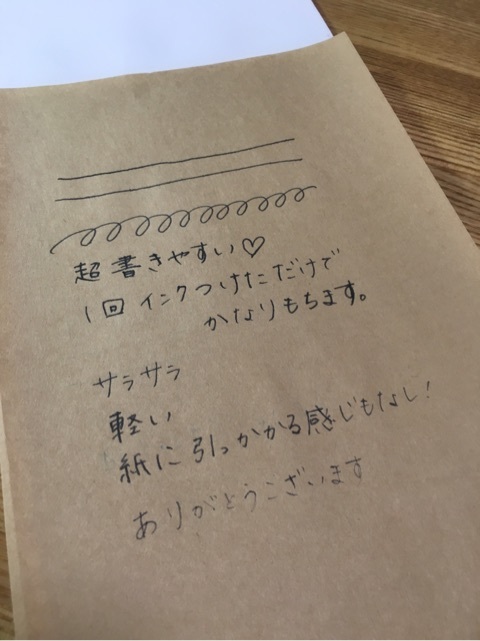 超書きやすい♡
1回インクつけただけで
かなりもちます。
サラサラ
軽い
紙に引っかかる感じもなし!
ありがとうございます